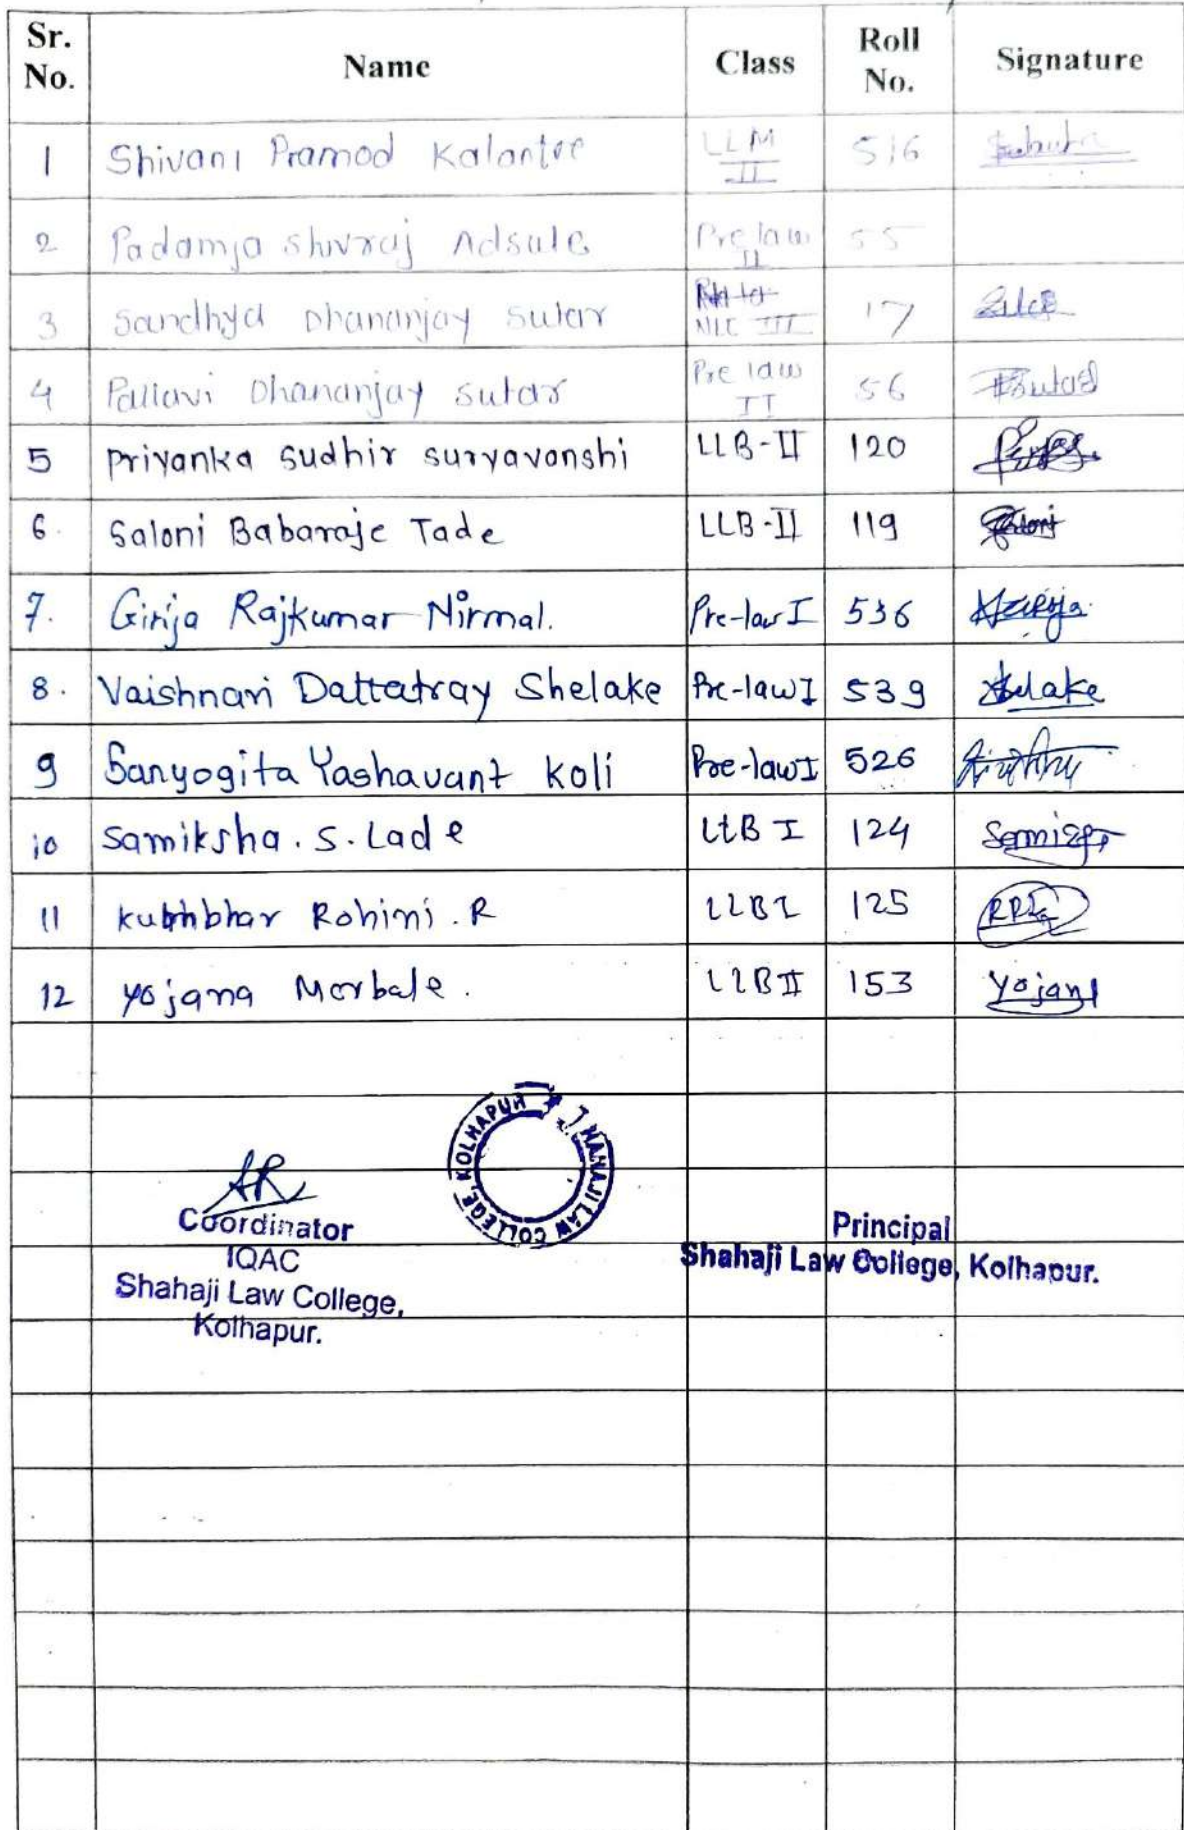 Sr. No. Name Class Roll No. Signature
1 Shivani Pramod Kalantre LLM II 516
2 Padamja Shivraj Adsule Pre law II 55
3 Sandhya Dhananjay Sutar NLC III 17
4 Pallavi Dhananjay Sutar Pre law II 56
5 Priyanka Sudhir Suryavanshi LLB-II 120
6. Saloni Babaraje Tade LLB-II 119 Saloni
7. Girija Rajkumar Nirmal. Pre-law I 536 Girija
8. Vaishnavi Dattatray Shelake Pre-law I 539 Shelake
9 Sanyogita Yashavant Koli Pre-law I 526
10 Samiksha. S. Lade LLB I 124
11 Kubhbhar Rohini. R LLB I 125
12 Yojana Morbale. LLB II 153 Yojana
SHAHAJI LAW COLLEGE, KOLHAPUR
Coordinator
IQAC
Shahaji Law College,
Kolhapur.
Principal
Shahaji Law College, Kolhapur.